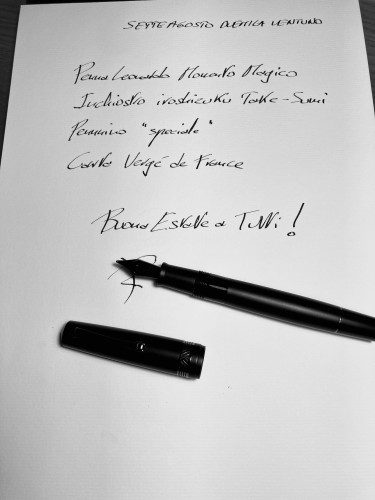 SETTE AGOSTO DUEMILA VENTUNO
Penna Leonardo Momento Magico
Inchiostro iroshizuku Take-Sumi
Pennino "speciale"
Carta Vergé de France
Buona Estate a Tutti!